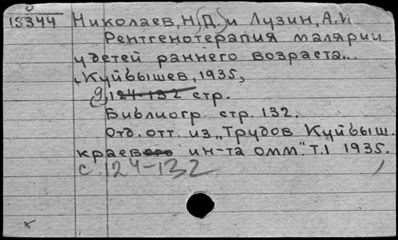 15344 Николаев, Н.Д. и Лузин, А.И
Рентгенотерапия малярии
у детей раннего возраста...
Куйбышев, 1935,
9, 124-132 стр.
Библиогр. стр. 132.
Отд. отт. из „Трудов Куйбыш.
краев ин-та омм". Т.1 1935.
с. 124-132